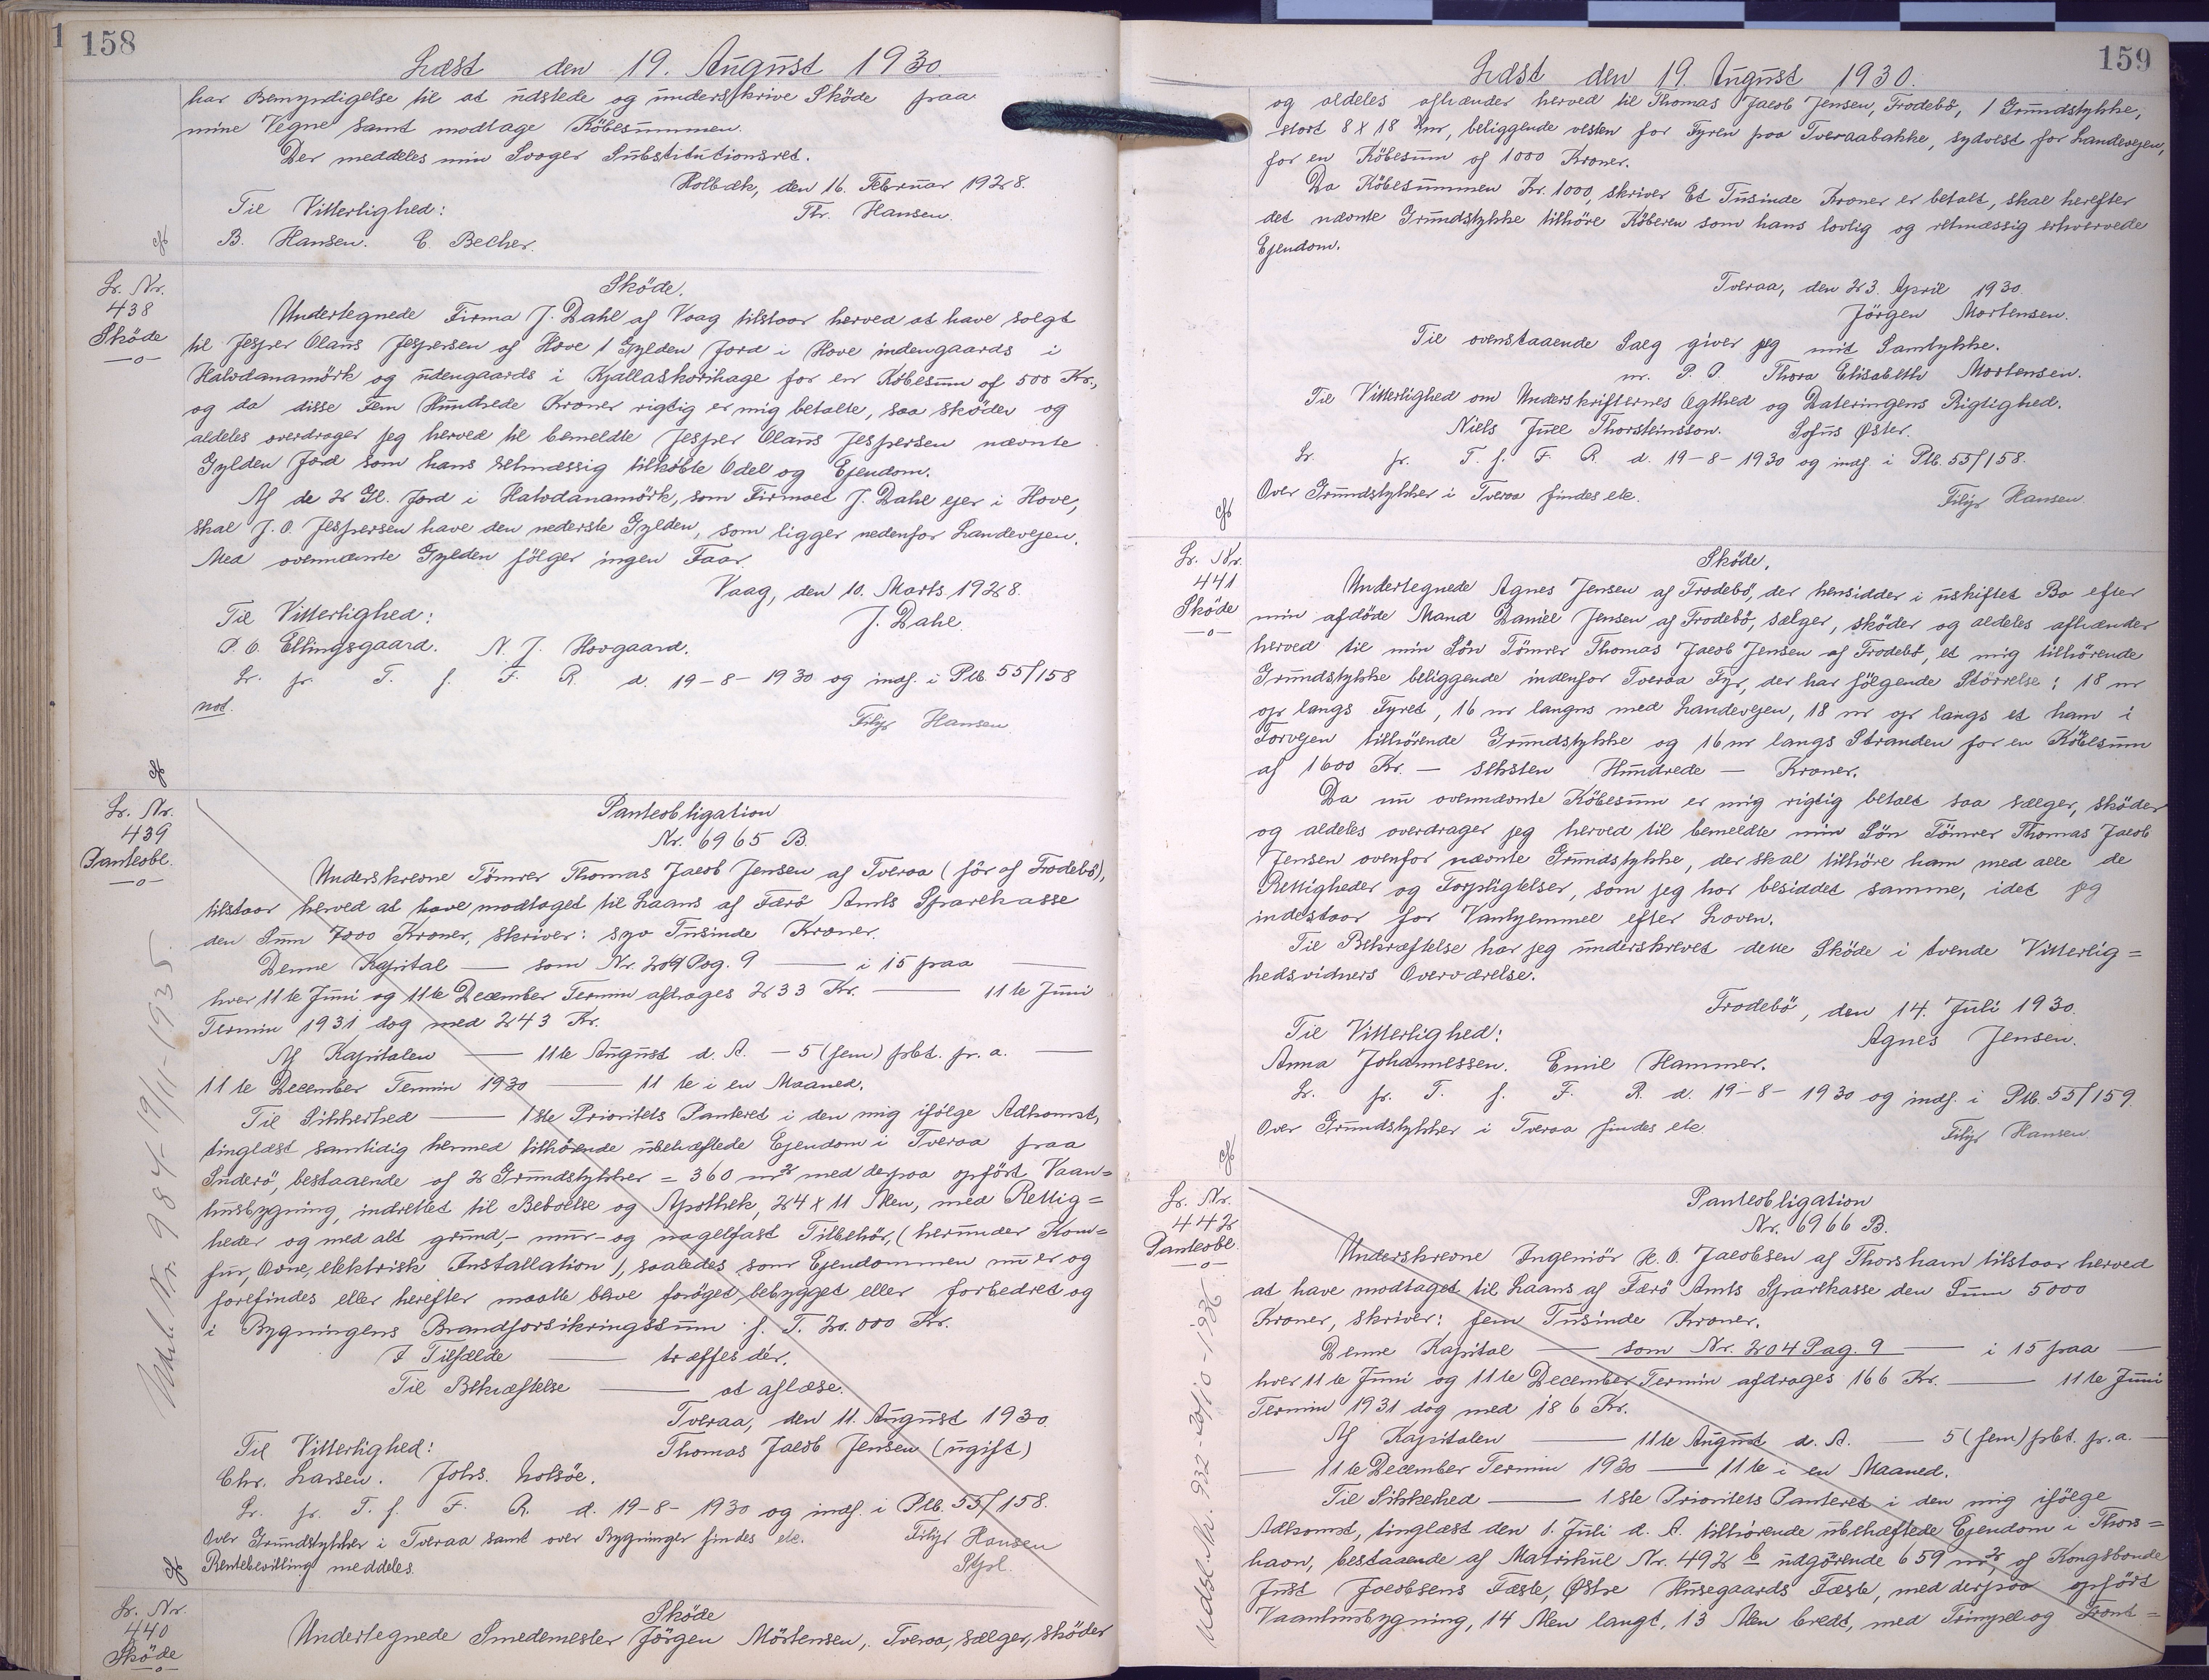 1 158
Læst den 19. August 1930.
har Bemyndigelse til at udstede og underskrive Sköde paa
mine Vegne samt modtage Köbesummen.
Der meddeles min Svoger Substitutionsret.
Holbæk, den 16. Februar 1928.
Til Vitterlighed: Thr. Hansen.
B. Hansen. E. Becher.
Lr. Nr.
438
Sköde
—o—
Sköde.
Undertegnede Firma J. Dahl af Vaag tilstaar herved at have solgt
til Jesper Olaus Jespersen af Hove 1 Gylden Jord i Hove indengaards i
Halvdanamörk og udengaards i Kjallaskorihage for en Köbesum af 500 Kr.,
og da disse Fem Hundrede Kroner rigtig er mig betalte, saa sköder og
aldeles overdrager jeg herved til bemeldte Jesper Olaus Jespersen nævnte
Gylden Jord som hans retmæssig tilköbte Odel og Ejendom.
Af de 2 Gl. Jord i Halvdanamörk, som Firmaet J. Dahl ejer i Hove,
skal J. O. Jespersen have den nederste Gylden, som ligger nedenfor Landevejen.
Med ovennævnte Gylden fölger ingen Faar.
Vaag, den 10. Marts 1928.
Til Vitterlighed: J. Dahl.
P. O. Ellingsgaard. N. J. Hovgaard.
Lr. pr. T. f. F. R. d. 19-8-1930 og indf. i Ptb. 55/158
not.
Filip Hansen
Lr. Nr.
439
Panteobl.
—o—
Panteobligation
Nr. 6965 B.
Underskrevne Tömrer Thomas Jacob Jensen af Tveraa (för af Frodebö),
tilstaar herved at have modtaget til Laans af Færö Amts Sparekasse
den Sum 7000 Kroner, skriver: syv Tusinde Kroner.
Denne Kapital — som Nr. 204 Pag. 9 — i 15 paa —
hver 11te Juni og 11te December Termin afdrages 233 Kr. — 11te Juni
Termin 1931 dog med 243 Kr.
Af Kapitalen — 11te August d. A. — 5 (fem) pct. pr. a. —
11te December Termin 1930 — 11te i en Maaned.
Til Sikkerhed — 1ste Prioritets Panteret i den mig ifölge Adkomst,
tinglæst samtidig hermed tilhörende ubehæftede Ejendom i Tveraa paa
Suderö, bestaaende af 2 Grundstykker = 360 m² med derpaa opfört Vaan=
husbygning, indrettet til Beboelse og Apothek, 24 x 11 Alen, med Rettig=
heder og med alt grund,- mur- og nagelfast Tilbehör, (herunder Kom=
fur, Ovne, elektrisk Installation), saaledes som Ejendommen nu er og
forefindes eller herefter maatte blive foröget, bebygget eller forbedret og
i Bygningens Brandforsikringssum f. T. 20.000 Kr.
I Tilfælde — træffes dér.
Til Bekræftelse — at aflæse.
Tveraa, den 11. August 1930.
Til Vitterlighed: Thomas Jacob Jensen (ugift)
Chr. Larsen. Johs. Nolsöe.
Lr. pr. T. f. F. R. d. 19-8-1930 og indf. i Ptb. 55/158.
Over Grundstykker i Tveraa samt over Bygninger findes etc. Filip Hansen
Rentebevilling meddeles.
Udsl. Nr. 984 - 19/11-1935.
Lr. Nr.
440
Sköde
—o—
Sköde
Undertegnede Smedemester Jörgen Mörtensen, Tveraa, sælger, sköder
159
Læst den 19. August 1930.
og aldeles afhænder herved til Thomas Jacob Jensen, Frodebö, 1 Grundstykke,
stort 8 x 18 m, beliggende vesten for Fyren paa Tveraabakke, sydvest for Landevejen,
for en Köbesum af 1000 Kroner.
Da Köbesummen Kr. 1000, skriver Et Tusinde Kroner er betalt, skal herefter
det nævnte Grundstykke tilhöre Köberen som hans lovlig og retmæssig erhvervede
Ejendom.
Tveraa, den 23. April 1930.
Jörgen Mortensen.
Til ovenstaaende Salg giver jeg mit Samtykke.
m. P. O. Thora Elisabeth Mortensen.
Til Vitterlighed om Underskrifternes Ægthed og Dateringens Rigtighed.
Niels Juel Thorsteinsson. Sofus Øster.
Lr. pr. T. f. F. R. d. 19-8-1930 og indf. i Ptb. 55/158.
Over Grundstykker i Tveraa findes etc. Filip Hansen
Lr. Nr.
441
Sköde
—o—
Sköde.
Undertegnede Agnes Jensen af Frodebö, der hensidder i uskiftet Bo efter
min afdöde Mand Daniel Jensen af Frodebö, sælger, sköder og aldeles afhænder
herved til min Sön Tömrer Thomas Jacob Jensen af Frodebö, et mig tilhörende
Grundstykke beliggende indenfor Tveraa Fyr, der har fölgende Störrelse: 18 m
op langs Fyret, 16 m langs med Landevejen, 18 m op langs et ham i
Forvejen tilhörende Grundstykke og 16 m langs Stranden for en Köbesum
af 1600 Kr. — seksten Hundrede — Kroner.
Da nu ovennævnte Köbesum er mig rigtig betalt saa sælger, sköder
og aldeles overdrager jeg herved til bemeldte min Sön Tömrer Thomas Jacob
Jensen ovenfor nævnte Grundstykke, der skal tilhöre ham med alle de
Rettigheder og Forpligtelser, som jeg har besiddet samme, idet jeg
indestaar for Vanhjemmel efter Loven.
Til Bekræftelse har jeg underskrevet dette Sköde i tvende Vitterlig=
hedsvidners Overværelse.
Frodebö, den 14. Juli 1930.
Til Vitterlighed: Agnes Jensen.
Anna Johannessen. Emil Hammer.
Lr. pr. T. f. F. R. d. 19-8-1930 og indf. i Ptb. 55/159.
Over Grundstykker i Tveraa findes etc
Filip Hansen
Lr. Nr.
442
Panteobl.
—o—
Panteobligation
Nr. 6966 B.
Underskrevne Ingeniör H. O. Jacobsen af Thorshavn tilstaar herved
at have modtaget til Laans af Færö Amts Sparekasse den Sum 5000
Kroner, skriver: fem Tusinde Kroner.
Denne Kapital — som Nr. 204 Pag. 9 — i 15 paa —
hver 11te Juni og 11te December Termin afdrages 166 Kr. — 11te Juni
Termin 1931 dog med 186 Kr.
Af Kapitalen — 11te August d. A. — 5 (fem) pct. pr. a. —
— 11te December Termin 1930 — 11te i en Maaned.
Til Sikkerhed — 1ste Prioritets Panteret i den mig ifölge
Adkomst, tinglæst den 1. Juli d. A. tilhörende ubehæftede Ejendom i Thors=
havn, bestaaende af Matrikul Nr. 492 b udgörende 659 m², af Kongsbonde
Just Jacobsens Fæste, Østre Husegaards Fæste, med derpaa opfört
Vaanhusbygning, 14 Alen langt, 13 Alen bredt, med Trempel og Front=
Udsl. Nr. 932 - 20/10-1936.